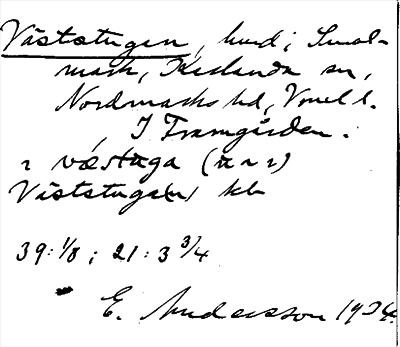 Väststugan, hmd i Smol-
mark, Karlanda sn,
Nordmarks hd, Vrml l.
I Framgården.
västuga
Väststuga(n) kb
39:1/8; 21:3 3/4
E. Andersson 1934.